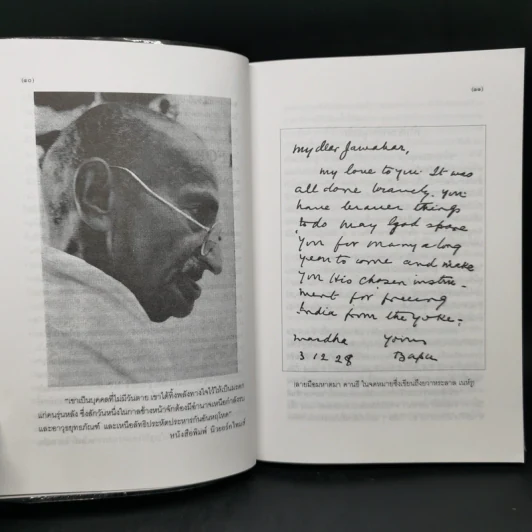 (๑๐)
"เขาเป็นบุคคลที่ไม่มีวันตาย เขาได้ทิ้งพลังทางใจไว้ให้เป็นมรดก
แก่คนรุ่นหลัง ซึ่งสักวันหนึ่งในกาลข้างหน้าจักต้องมีอำนาจเหนือกำลังรบ
และอาวุธยุทธภัณฑ์ และเหนือลัทธิประหัตประหารกันอันทฤโหด"
หนังสือพิมพ์ นิวยอร์กไทมส์
(๑๑)
My dear Jawahar,
My love to you. It was
all done bravely. You
have braver things
to do. May God spare
you for many a long
year to come and make
you His chosen instru-
ment for freeing
India from the yoke.
Wardha Yours
3 12 28 Bapu
(ลายมือมหาตมา คานธี ในจดหมายซึ่งเขียนถึงยวาหระลาล เนห์รู)